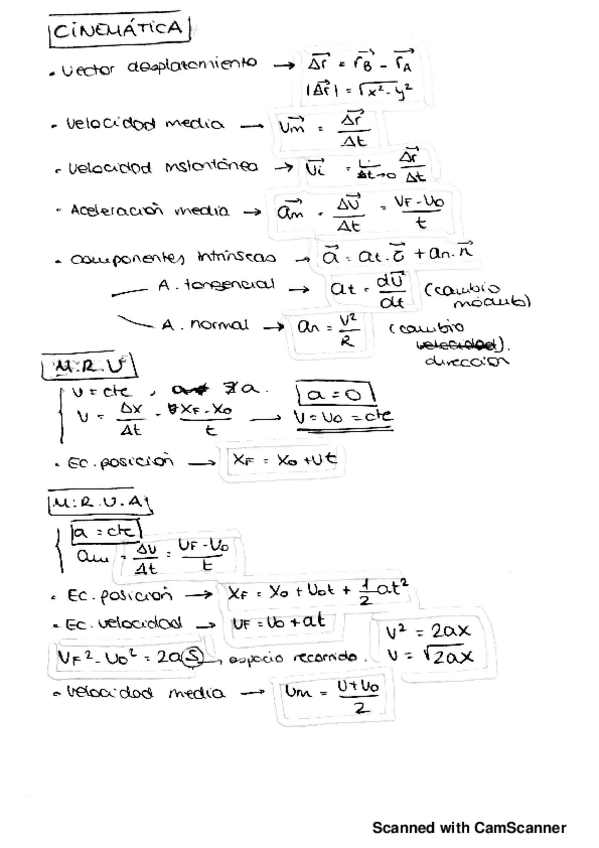 CINEMÁTICA
• Vector desplatamiento → Δr⃗ = r⃗B - r⃗A
|Δr⃗| = √x²-y²
• Velocidad media → v⃗m = Δr⃗/Δt
• Velocidad instantánea → v⃗i = Li Δt→0 Δr⃗/Δt
• Aceleración media → a⃗m = Δv⃗/Δt = VF-V0/t
• Componentes intrínsecas → a⃗ = at·τ⃗ + an·n⃗
A. tangencial → at = dv⃗/dt (cambio módulo)
A. normal → an = v²/R (cambio velocidad). dirección
M.R.U
v = cte, ∄ a. a = 0
v = Δx/Δt = XF-X0/t → V = V0 = cte
• Ec. posición → XF = X0 + vt
M.R.U.A
a = cte
am = Δv/Δt = VF-V0/t
• Ec. posición → XF = X0 + V0t + 1/2 at²
• Ec. velocidad → VF = V0 + at
V² = 2ax
VF² - V0² = 2a S → espacio recorrido.
V = √2ax
• Velocidad media → Vm = V+V0/2
Scanned with CamScanner